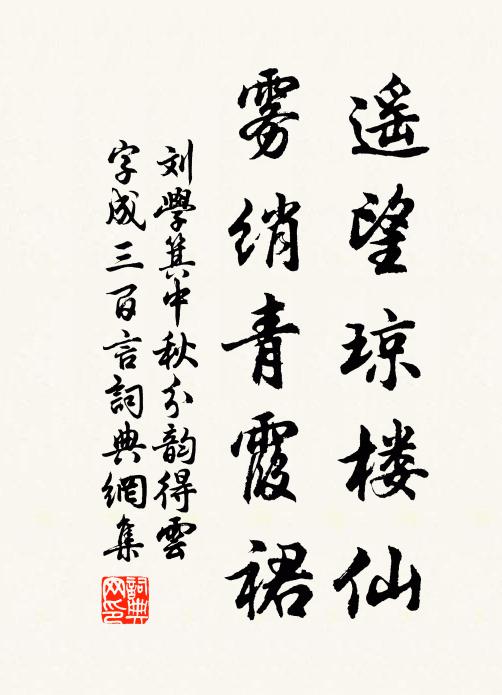 遥望琼楼仙
雾绡青霞裙
刘學箕中秋分韵得雲
字成三百言詞典網集
詞典网印